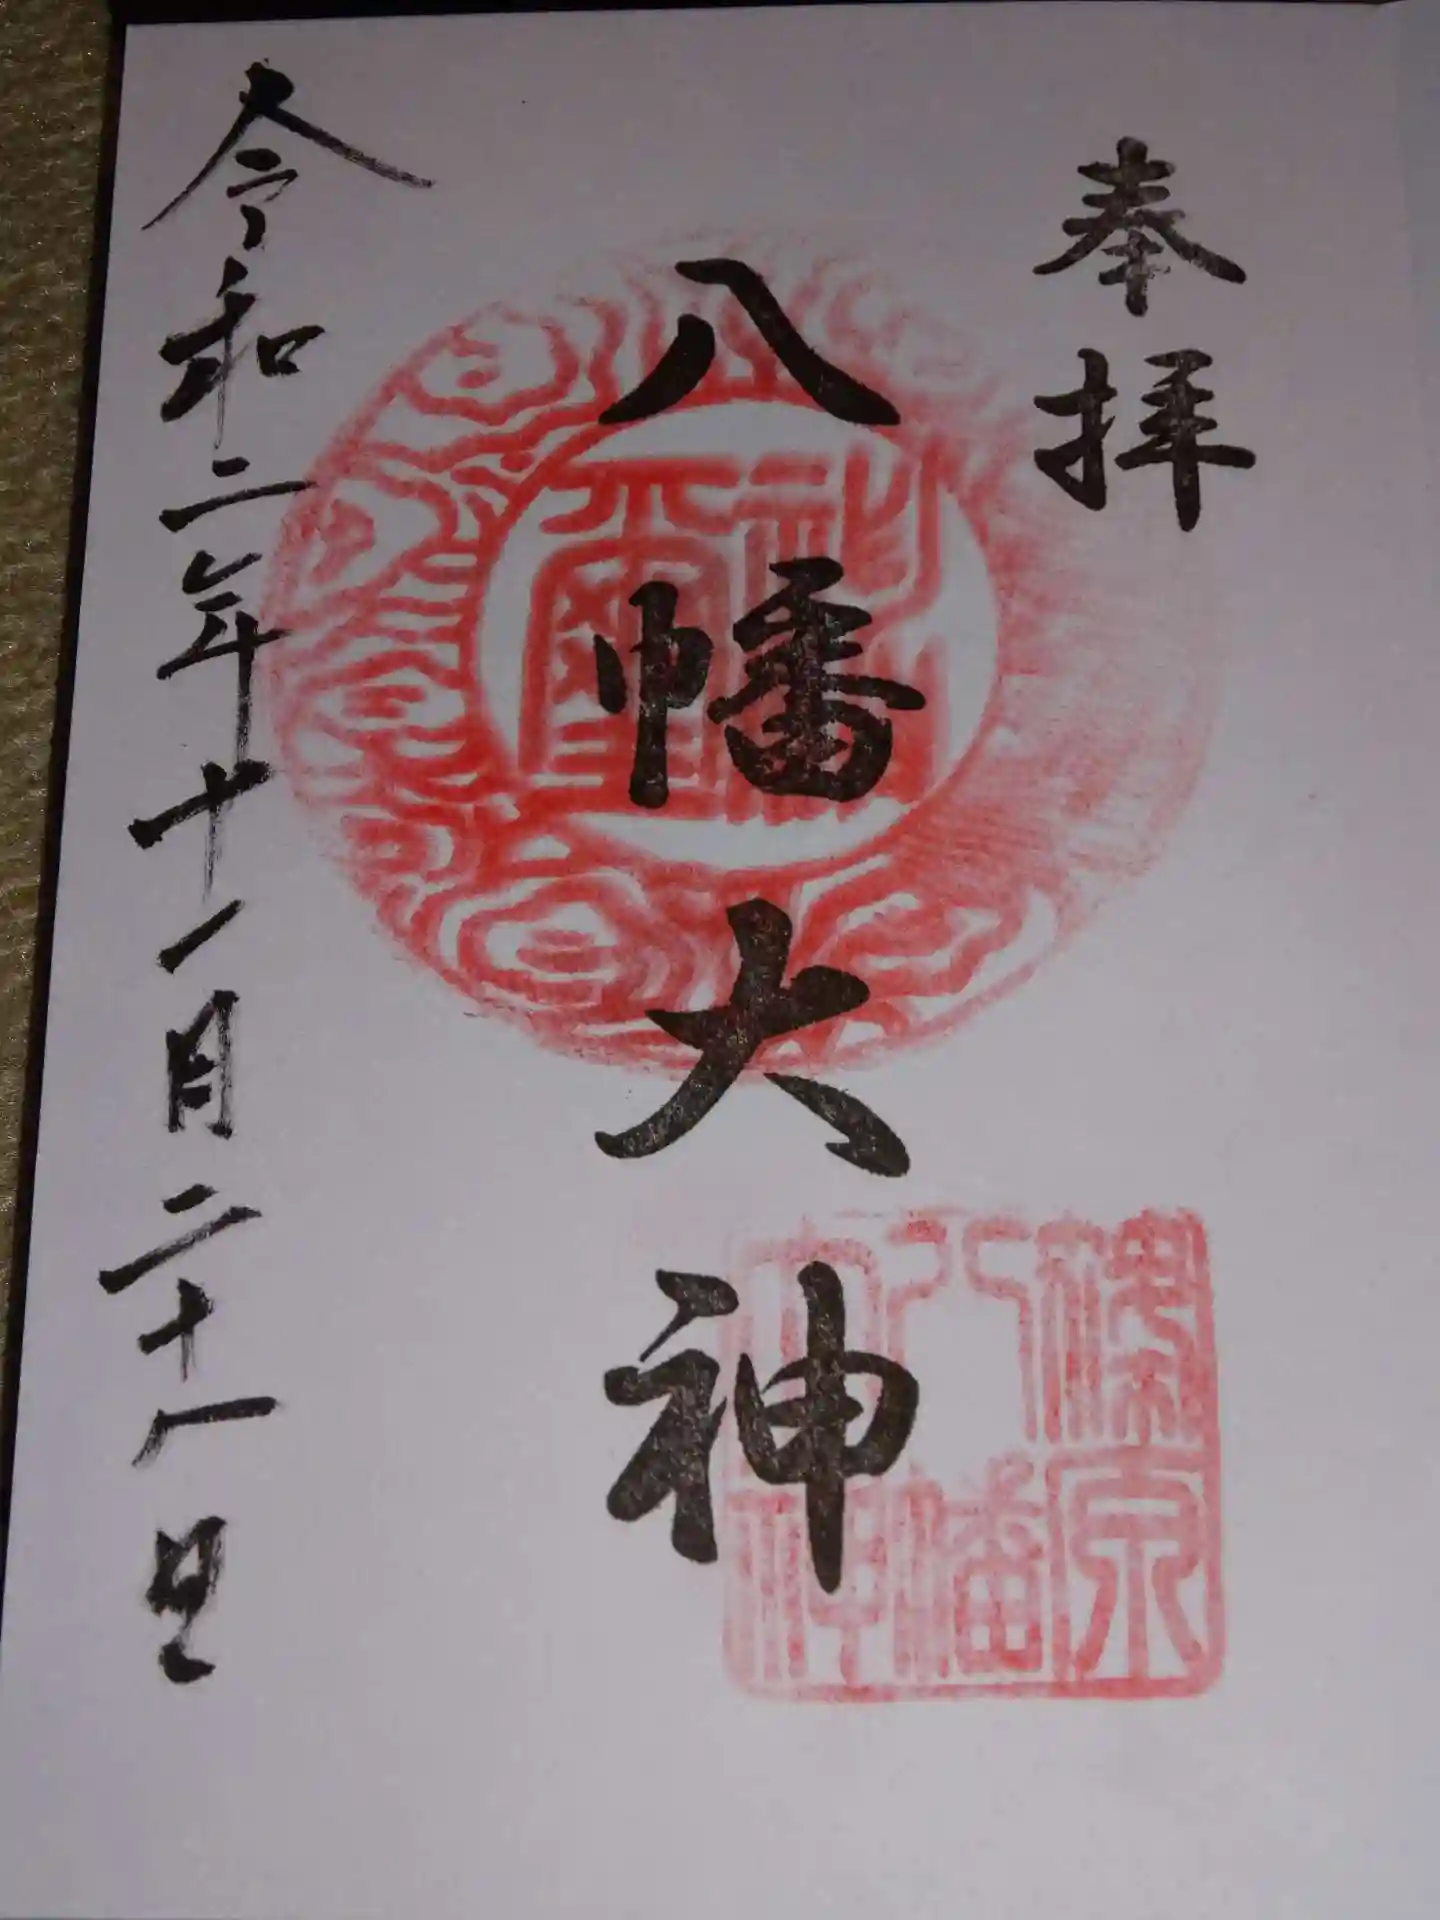 奉拝
八幡大神
令和二年十一月二十一日
八幡
大神